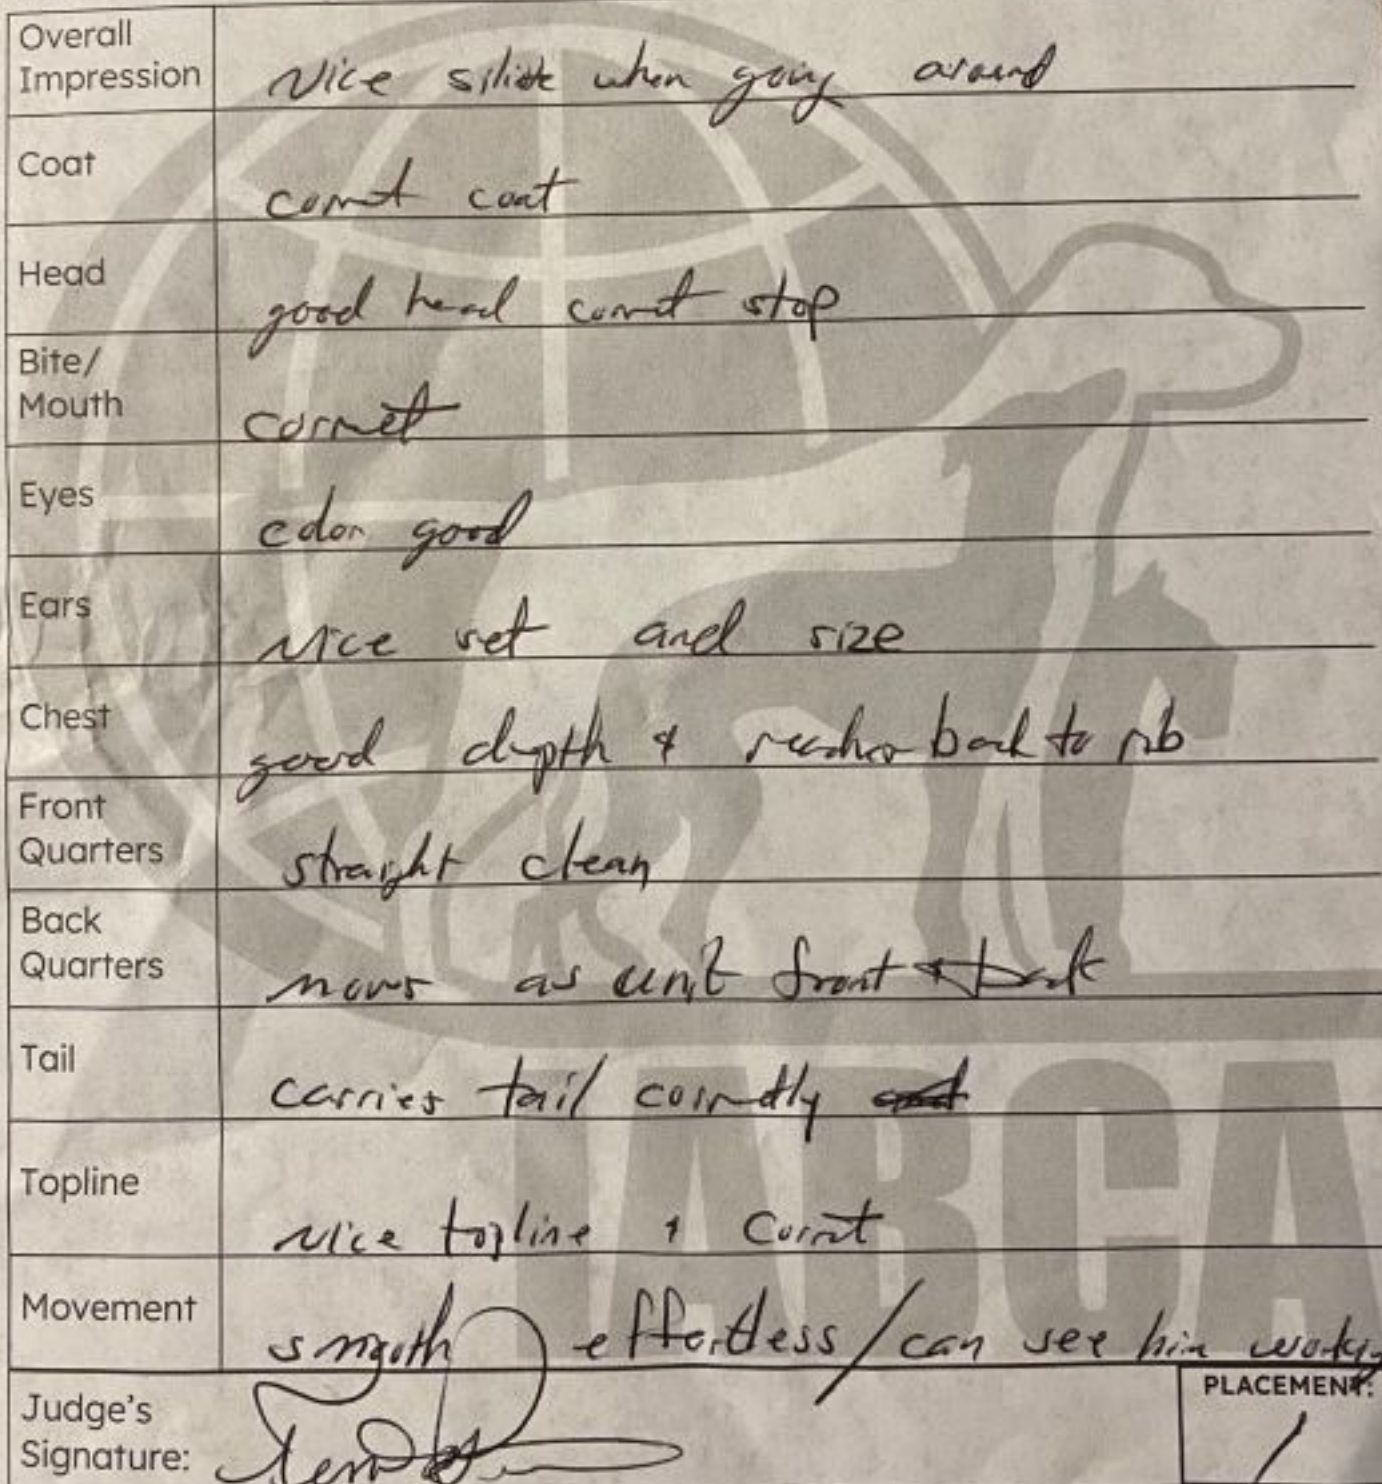 Overall
Impression
Nice slide when going around
Coat
correct coat
Head
good head correct stop
Bite/
Mouth
correct
Eyes
color good
Ears
Nice set and size
Chest
good depth & reaches back to rib
Front
Quarters
straight clean
Back
Quarters
moves as unit front & back
Tail
carries tail correctly
Topline
Nice topline & correct
Movement
smooth effortless / can see him working
IABCA
PLACEMENT:
1
Judge's
Signature: